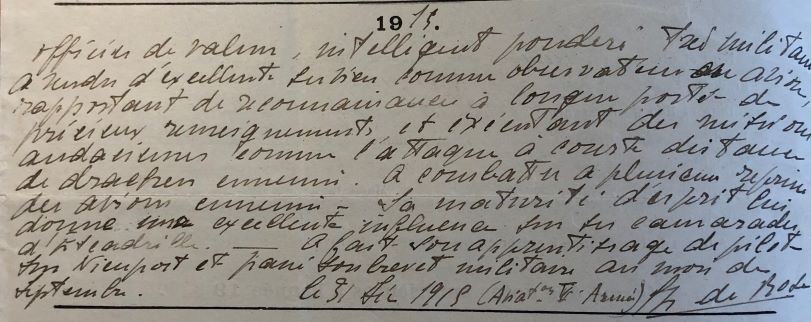 1915.
officier de valeur, intelligent pondéré très militaire
a rendu d'excellents services comme observateur en avion
rapportant de reconnaissances à longue portée de
précieux renseignements, et exécutant des missions
audacieuses comme l'attaque à courte distance
de drachen ennemi. A combattu à plusieurs reprises
des avions ennemis – Sa maturité d'esprit lui
donne une excellente influence sur ses camarades
d'Escadrille. — A fait son apprentissage de pilote
sur Nieuport et passé son brevet militaire au mois de
septembre. le 31 Déc 1915 (Aviat^on V^e Armée) de Rose